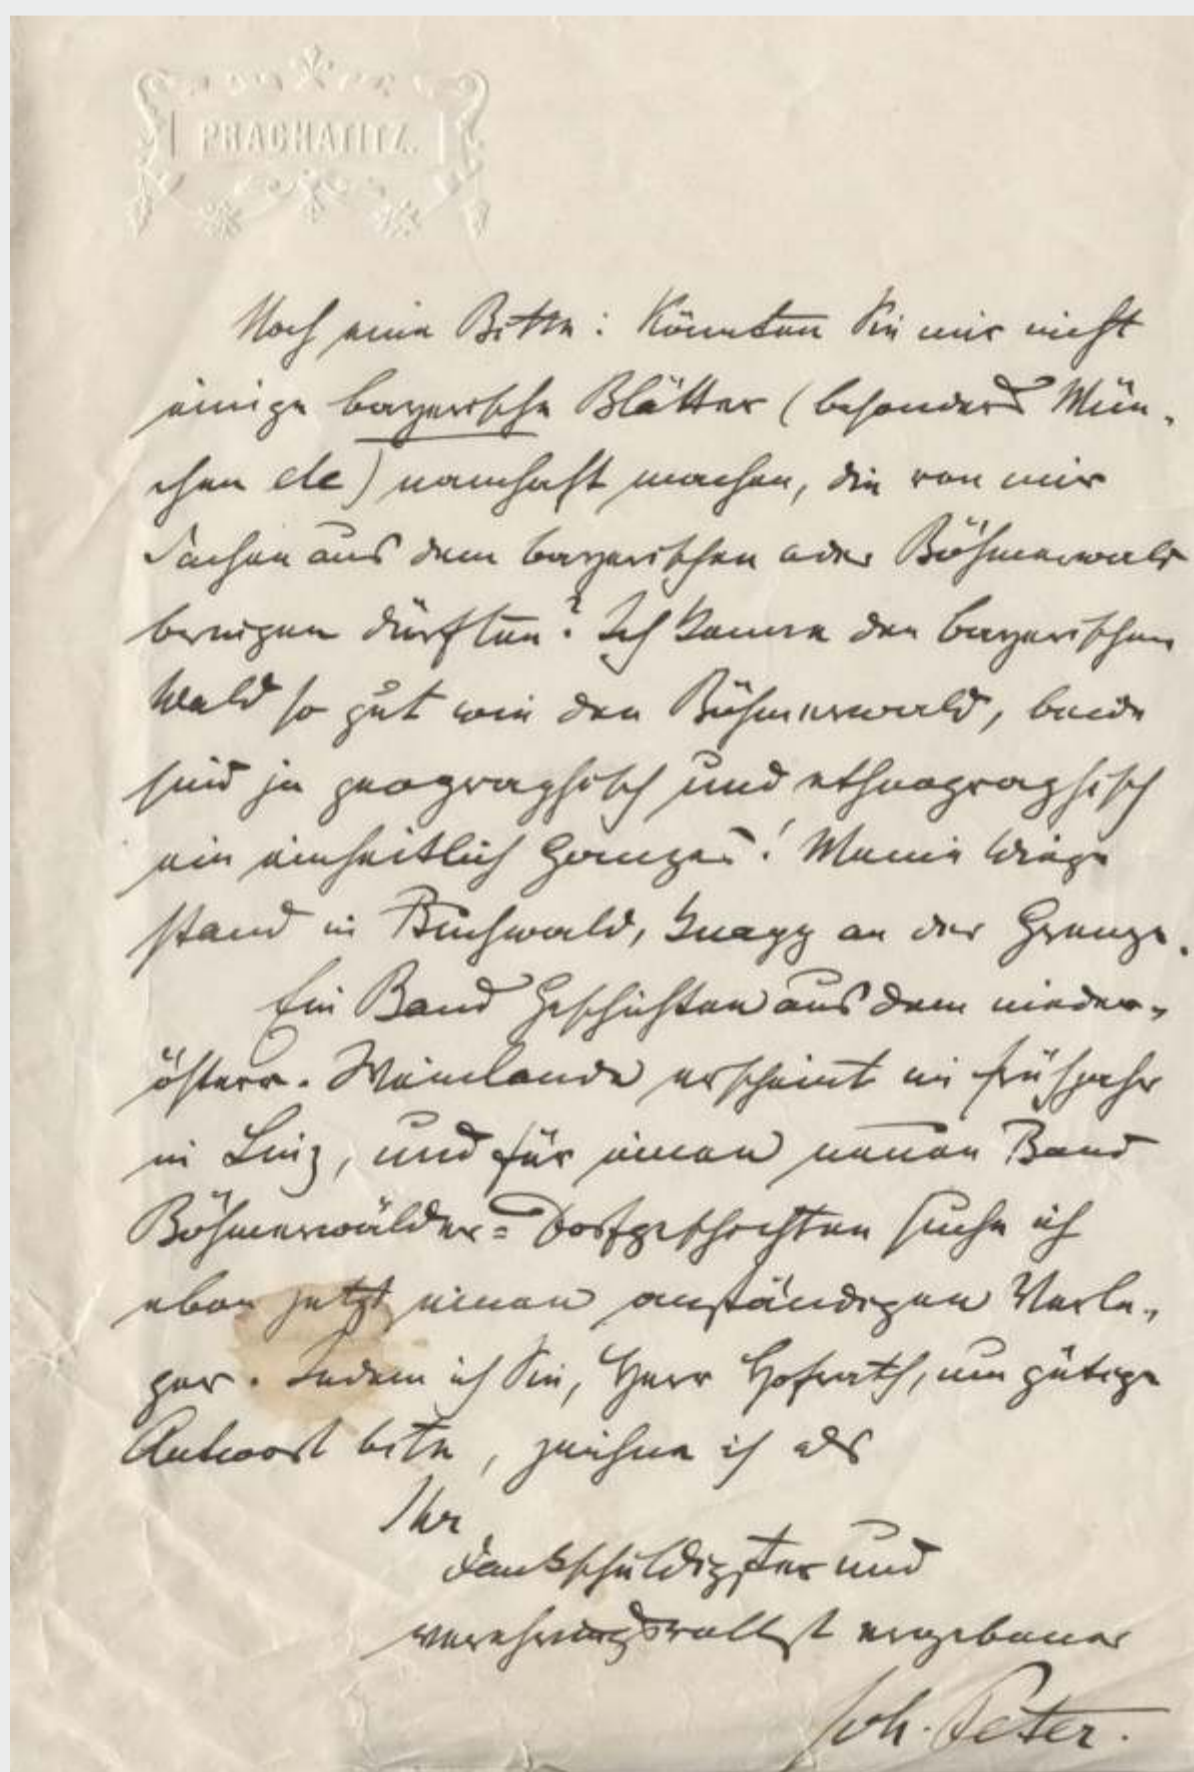 PRACHATITZ.
Noch eine Bitte: Könnten Sie mir nicht
einige bayerische Blätter (besonders Mün-
chen etc) namhaft machen, die von mir
Sachen aus dem bayerischen oder Böhmerwald
bringen dürften? Ich kenne den bayerischen
Wald so gut wie den Böhmerwald, beide
sind ja geographisch und ethnographisch
ein einheitlich Ganzes! Meine Wiege
stand in Buchwald, knapp an der Grenze.
Ein Band Geschichten aus dem nieder-
österr. Weinlande erscheint im Frühjahr
in Linz, und für einen neuen Band
Böhmerwälder=Dorfgeschichten suche ich
eben jetzt einen anständigen Verle-
ger. Indem ich Sie, Herr Hofrath, um gütige
Antwort bitte, zeichne ich als
Ihr
dankschuldigster und
verehrungsvollst ergebener
Joh. Peter.